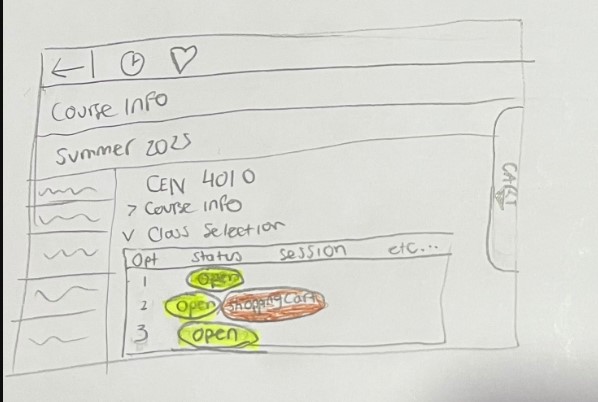 Course Info
Summer 2025
CEN 4010
> Course info
v Class Selection
Opt Status session etc...
1 Open
2 Open Shopping Cart
3 Open
CART